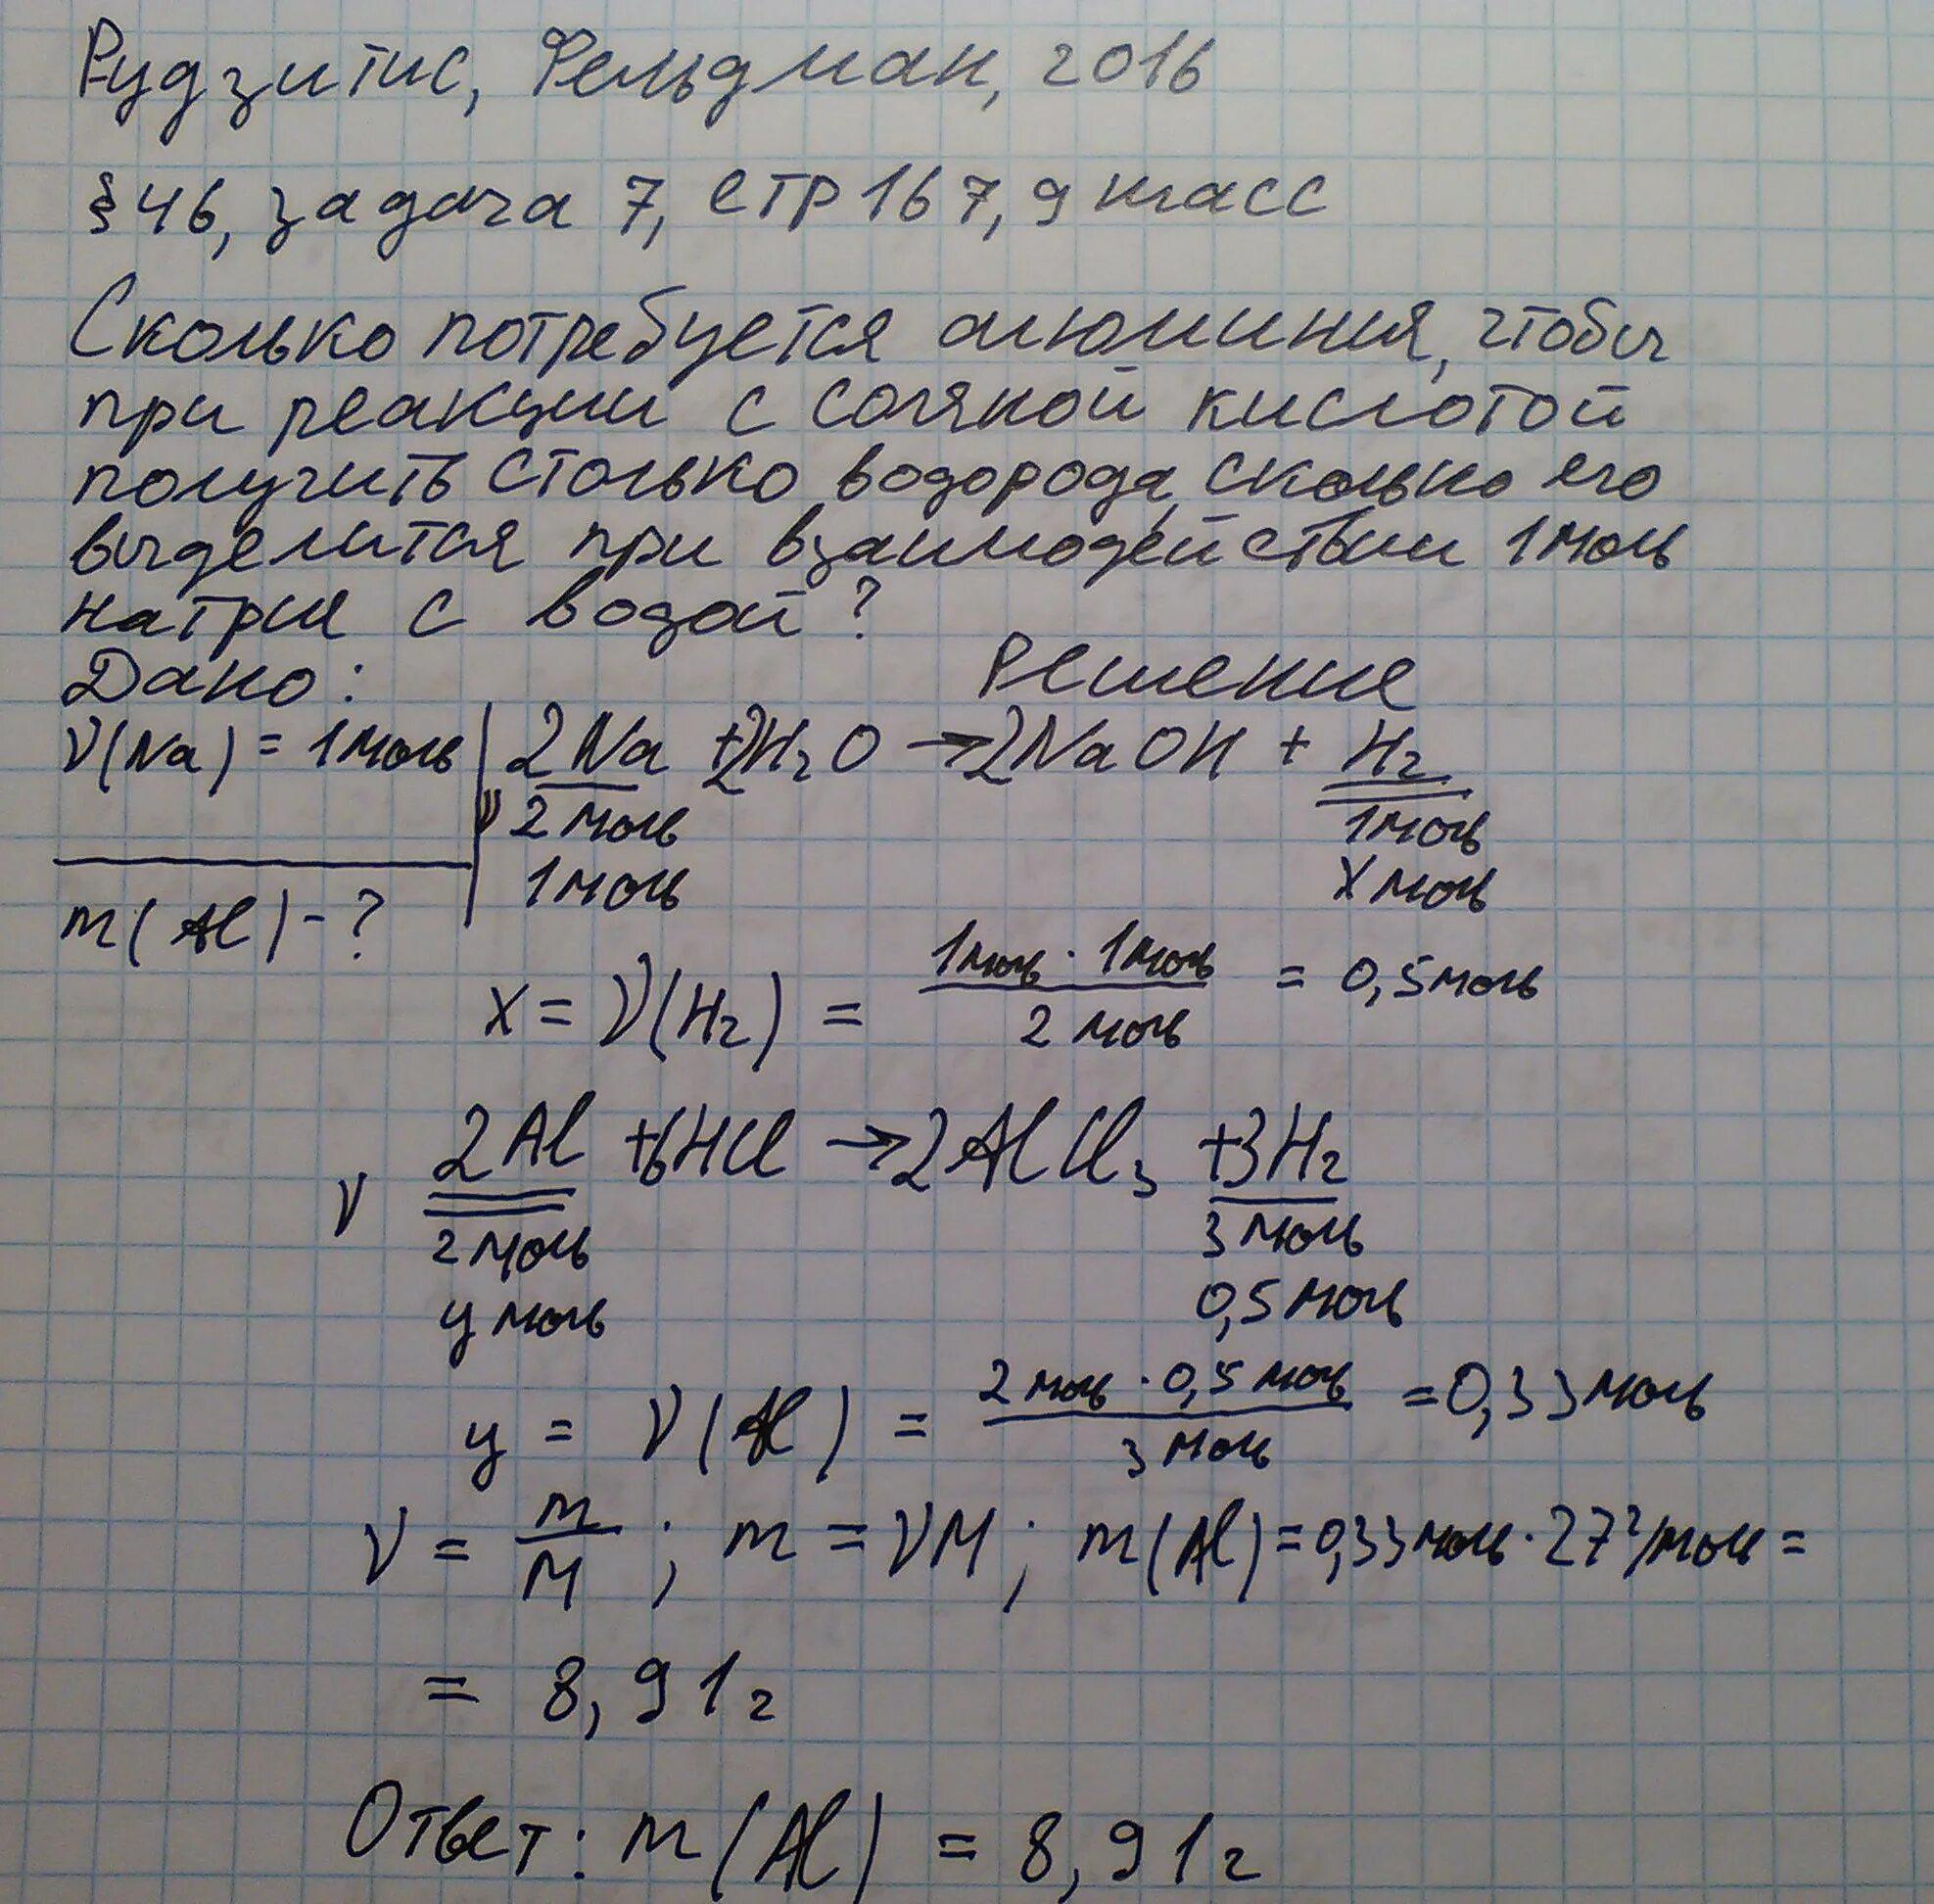 Рудзитис, Фельдман, 2016
§46, задача 7, стр 167, 9 класс
Сколько потребуется алюминия, чтобы
при реакции с соляной кислотой
получить столько водорода, сколько его
выделится при взаимодействии 1 моль
натрия с водой?
Дано: Решение
ν(Na) = 1 моль 2Na + 2H₂O → 2NaOH + H₂
ν 2 моль 1 моль
1 моль X моль
m(Al) - ?
X = ν(H₂) = (1 моль · 1 моль) / (2 моль) = 0,5 моль
2Al + 6HCl → 2AlCl₃ + 3H₂
ν 2 моль 3 моль
y моль 0,5 моль
y = ν(Al) = (2 моль · 0,5 моль) / (3 моль) = 0,33 моль
ν = m/M ; m = νM ; m(Al) = 0,33 моль · 27 г/моль =
= 8,91 г
Ответ: m(Al) = 8,91 г